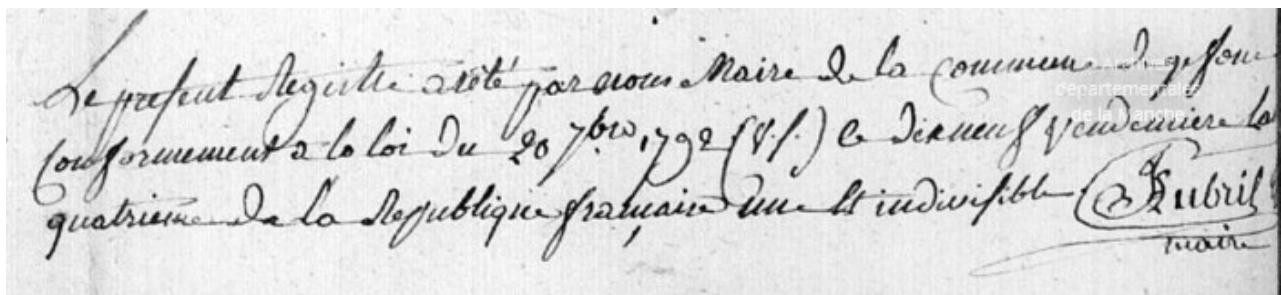 Le present Registre arété par nous Maire de la Commune de
Conformement a la loi du 20 7bre 1792 (V.S.) le dixneuf Vendemiere la
quatrieme de la Republique française une et indivisible
maire
départementales
de la Manche